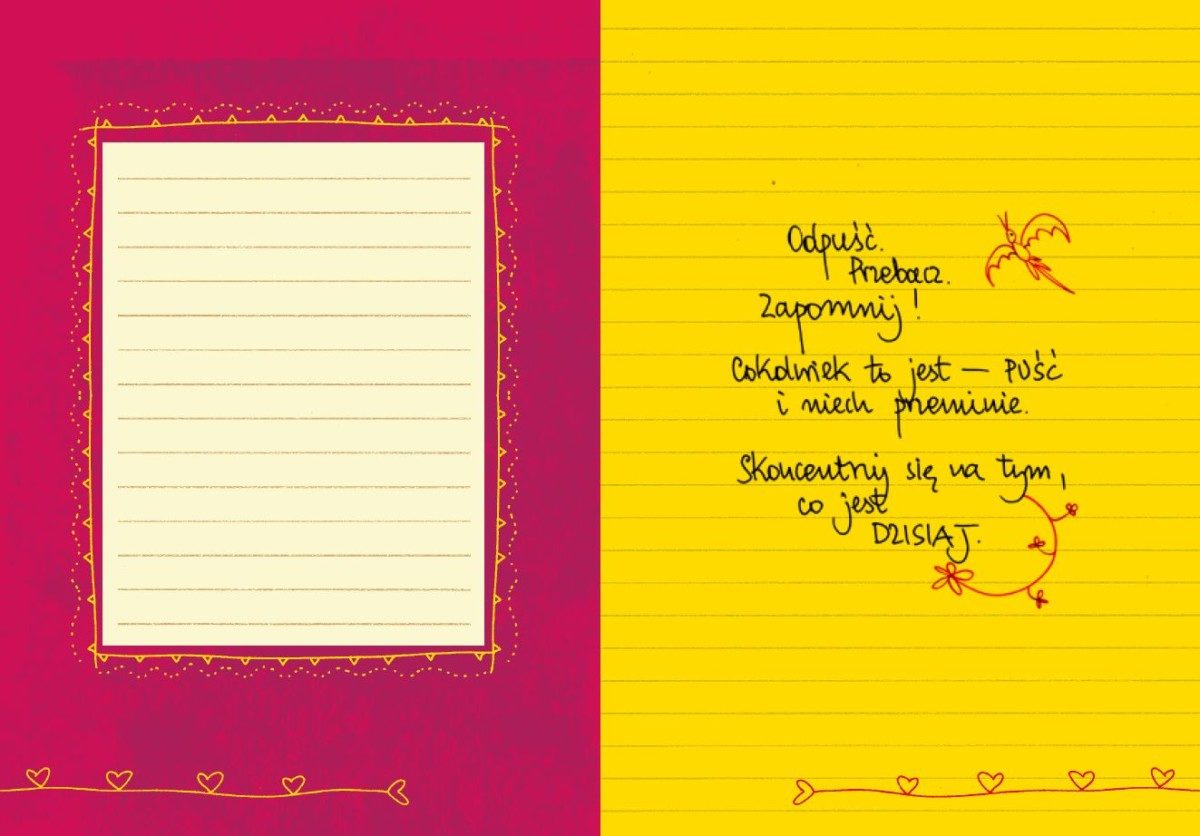 Odpuść.
Przebacz.
Zapomnij!
Cokolwiek to jest — PUŚĆ
i niech przeminie.
Skoncentruj się na tym,
co jest
DZISIAJ.